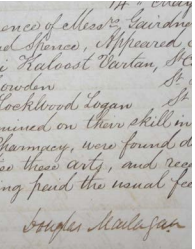 14th
ence of Messrs. Gairdn
el Spence, Appeared
i Kaloost Vartan, St C
owden St
Lockwood Logan St
mined on their skill in
Pharmacy, were found d
ise these arts, and rece
ing paid the usual fee
Douglas Maclagan